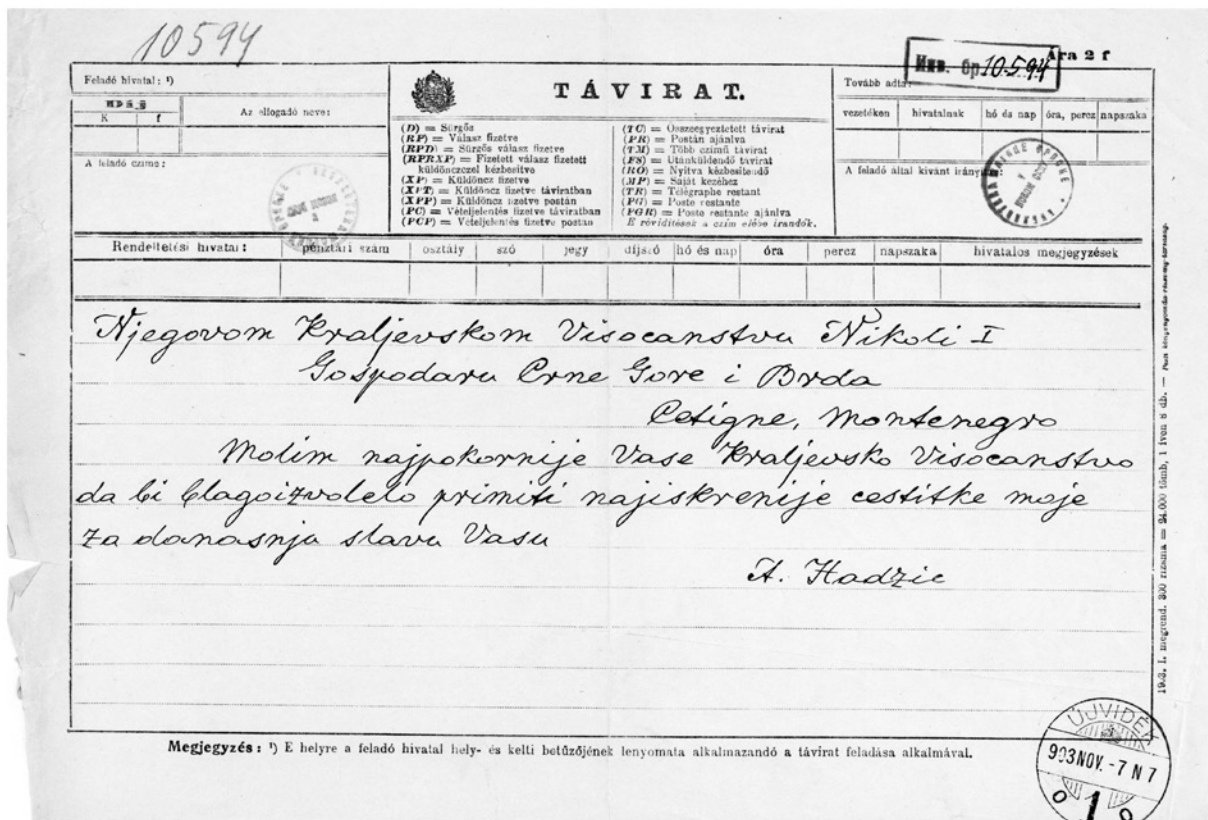 10594
Инв. бр 10.594
Ára 2 f
Feladó hivatal: ¹)
K f
Az elfogadó neve:
A feladó czime:
TÁVIRAT.
(D) = Sürgős
(RP) = Válasz fizetve
(RPD) = Sürgős válasz fizetve
(RPRXP) = Fizetett válasz fizetett
küldönczczel kézbesitve
(XP) = Küldöncz fizetve
(XPT) = Küldöncz fizetve táviratban
(XPP) = Küldöncz fizetve postán
(PC) = Vételjelentés fizetve táviratban
(PCP) = Vételjelentés fizetve postán
(TC) = Összeegyeztetett távirat
(PR) = Postán ajánlva
(TM) = Több czimű távirat
(FS) = Utánküldendő távirat
(RO) = Nyitva kézbesitendő
(MP) = Saját kezéhez
(TR) = Télegraphe restant
(PG) = Poste restante
(PGR) = Poste restante ajánlva
E rövidítések a czim elébe irandók.
Tovább adta:
vezetéken hivatalnak hó és nap óra, percz napszaka
A feladó által kivánt irány
Rendeltetési hivatal: pénztári szám osztály szó jegy díjszó hó és nap óra percz napszaka hivatalos megjegyzések
Njegovom Kraljevskom Visocanstvu Nikoli I
Gospodaru Crne Gore i Brda
Cetigne, Montenegro
Molim najpokornije Vase Kraljevsko Visocanstvo
da bi blagoizvolelo primiti najiskrenije cestitke moje
za danasnju slavu Vasu
A. Hadzic
Megjegyzés: ¹) E helyre a feladó hivatal hely- és kelti betűzőjének lenyomata alkalmazandó a távirat feladása alkalmával.
ÚJVIDÉK
903 NOV. -7 N 7
1